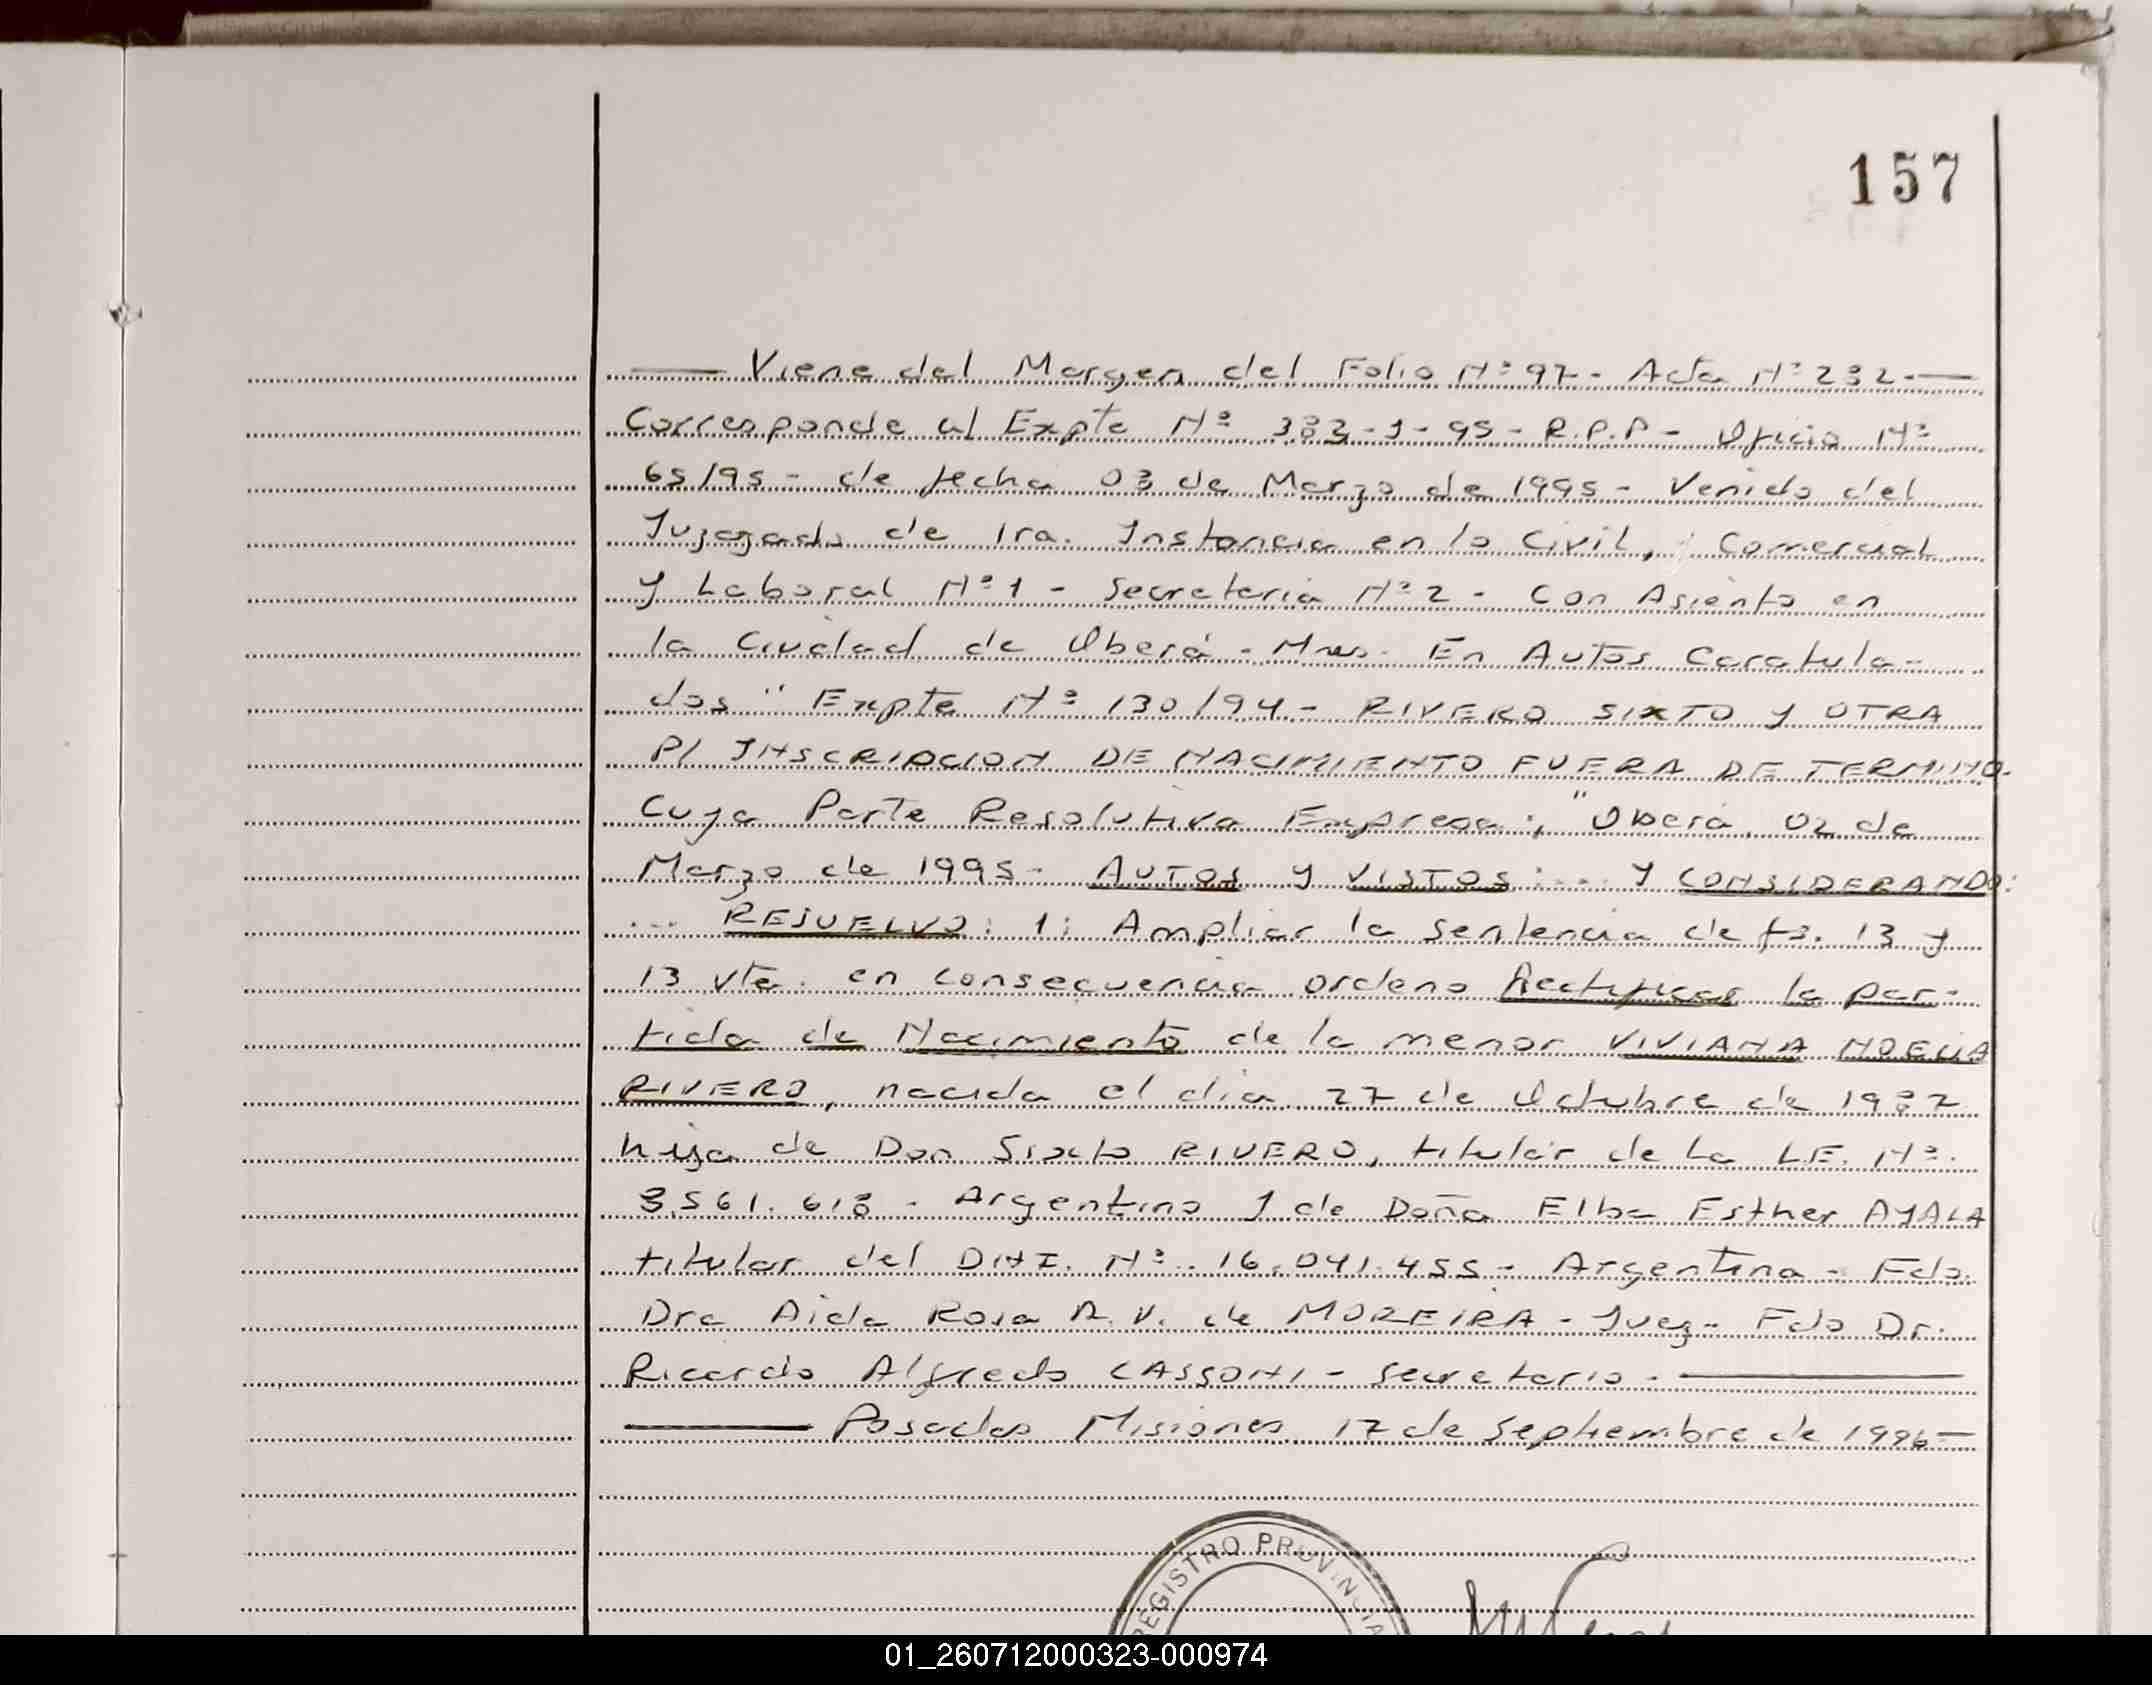 157
Viene del Margen del Folio Nº 97 - Acta Nº 282 -
Corresponde al Expte Nº 383-J-95 - R.P.P - Oficio Nº
65/95 - de fecha 03 de Marzo de 1995 - Venido del
Juzgado de 1ra. Instancia en lo Civil, Comercial
y Laboral Nº 1 - Secretaria Nº 2 - Con Asiento en
la Ciudad de Oberá - Mnes. En Autos Caratula-
dos " Expte Nº 130/94 - RIVERO SIXTO Y OTRA
P/ INSCRIPCION DE NACIMIENTO FUERA DE TERMINO.
Cuya Parte Resolutiva Expresa: "Oberá, 02 de
Marzo de 1995 - AUTOS Y VISTOS: ... Y CONSIDERANDO:
... RESUELVO: 1: Ampliar la sentencia de fs. 13 y
13 vta. en consecuencia ordeno Rectificar la par-
tida de Nacimiento de la menor VIVIANA NOELIA
RIVERO, nacida el dia 27 de Octubre de 1987
hija de Don Sixto RIVERO, titular de la L.E. Nº.
8.561.618 - Argentino y de Doña Elba Esther AYALA
titular del DNI. Nº. 16.041.455 - Argentina - Fdo.
Dra Aida Rosa A. V. de MOREIRA - Juez - Fdo Dr.
Ricardo Alfredo CASSONI - Secretario -
Posadas Misiones 17 de Septiembre de 1996 -
REGISTRO PROVINCIA
01_260712000323-000974